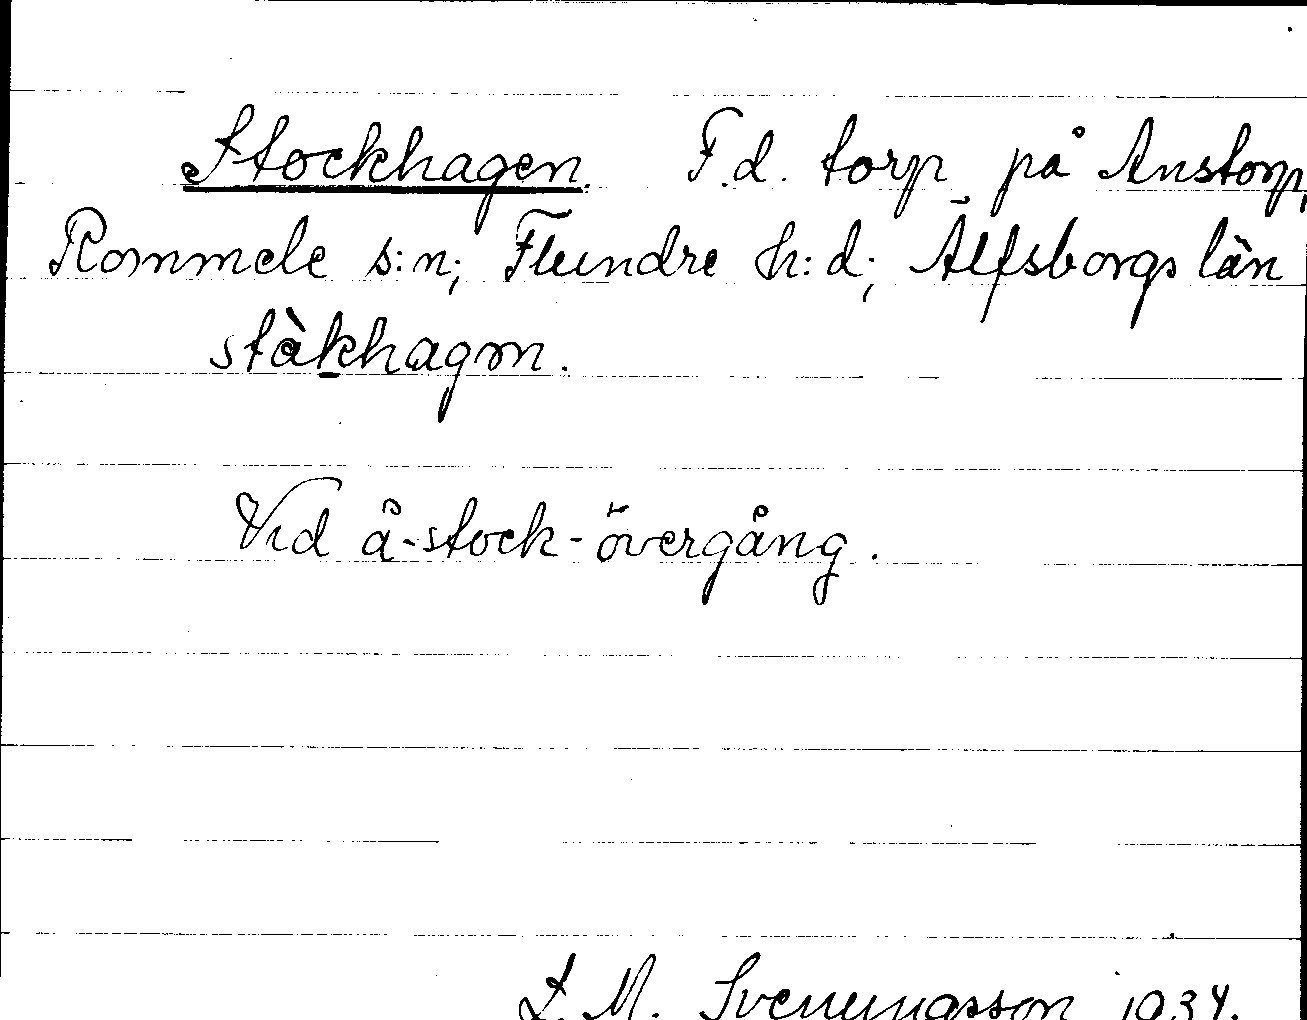 Stockhagen. F.d. torp på Anstorp,
Rommele s:n; Flundre h:d; Älfsborgs län
stàkhagm.
Vid å-stock-övergång.
L. M. Svenungsson 1934.